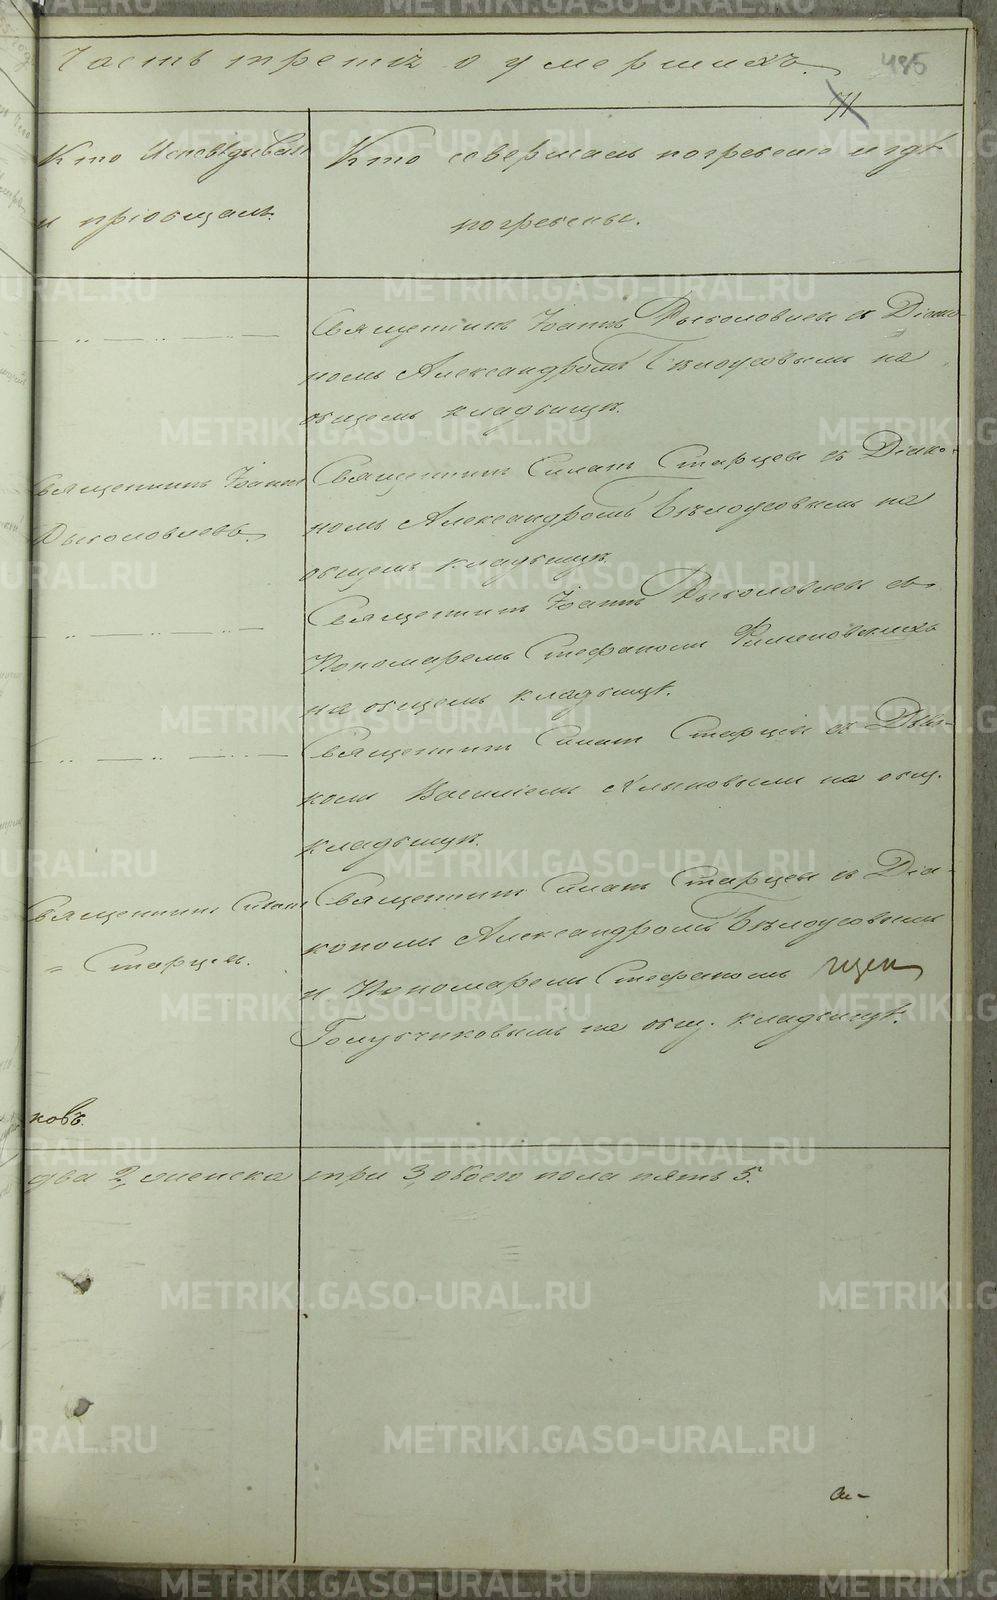 Часть третія о умершихъ.
485
71
Кто исповѣдывалъ
и пріобщалъ.
Кто совершалъ погребеніе и гдѣ
погребены.
Священникъ Іоаннъ Рыболовлевъ съ Діако-
номъ Александромъ Бѣлоусовымъ на
общемъ кладбищѣ.
Священникъ Іоаннъ
Рыболовлевъ.
Священникъ Силант Старцевъ съ Діако-
номъ Александромъ Бѣлоусовымъ на
общемъ кладбищѣ.
Священникъ Іоаннъ Рыболовлевъ съ
Пономаремъ Стефаномъ
на общемъ кладбищѣ.
Священникъ Силант Старцевъ съ Дья-
кономъ Василіемъ Клыковымъ на общ.
кладбищѣ.
Священникъ Силант
= Старцевъ.
Священникъ Силант Старцевъ съ Діа-
кономъ Александромъ Бѣлоусовымъ
и Пономаремъ Стефаномъ
Голубчиковымъ на общ. кладбищѣ.
ковъ.
два 2, женска три 3, обоего пола пять 5.
METRIKI.GASO-URAL.RU